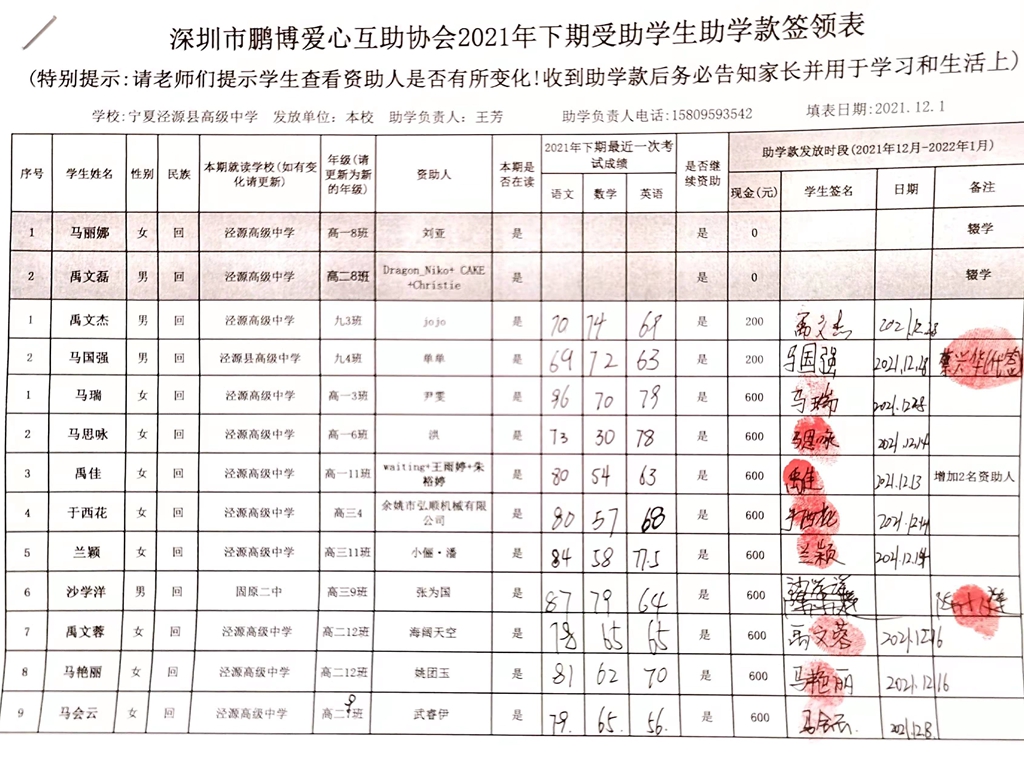 深圳市鹏博爱心互助协会2021年下期受助学生助学款签领表
(特别提示:请老师们提示学生查看资助人是否有所变化!收到助学款后务必告知家长并用于学习和生活上)
学校:宁夏泾源县高级中学 发放单位: 本校 助学负责人: 王芳 助学负责人电话:15809593542 填表日期:2021.12.1
序号 学生姓名 性别 民族 本期就读学校(如有变化请更新) 年级(请更新为新的年级) 资助人 本期是否在读 2021年下期最近一次考试成绩 语文 数学 英语 是否继续资助 助学款发放时段(2021年12月-2022年1月) 现金(元) 学生签名 日期 备注
1 马丽娜 女 回 泾源高级中学 高一8班 刘亚 是 是 0 辍学
2 禹文磊 男 回 泾源高级中学 高二8班 Dragon_Niko+ CAKE+Christie 是 是 0 辍学
1 禹文杰 男 回 泾源高级中学 九3班 jojo 是 70 74 69 是 200 禹文杰
2 马国强 男 回 泾源县高级中学 九4班 单单 是 69 72 63 是 200 马国强 2021.12.18
1 马瑞 女 回 泾源高级中学 高一3班 尹雯 是 96 70 79 是 600 马瑞
2 马思咏 女 回 泾源高级中学 高一6班 洪 是 73 30 78 是 600 马思咏 2021.12.14
3 禹佳 女 回 泾源高级中学 高一11班 waiting+王雨婷+朱裕婷 是 80 54 63 是 600 禹佳 2021.12.13 增加2名资助人
4 于西花 女 回 泾源高级中学 高三4 余姚市弘顺机械有限公司 是 80 57 68 是 600 于西花 2021.12.14
5 兰颖 女 回 泾源高级中学 高三11班 小俪·潘 是 84 58 77.5 是 600 兰颖 2021.12.14
6 沙学洋 男 回 固原二中 高三9班 张为国 是 87 79 64 是 600
7 禹文蓉 女 回 泾源高级中学 高二12班 海阔天空 是 78 65 65 是 600 禹文蓉 2021.12.16
8 马艳丽 女 回 泾源高级中学 高二12班 姚团玉 是 81 62 70 是 600 马艳丽 2021.12.16
9 马会云 女 回 泾源高级中学 高二9班 武睿伊 是 79. 65. 56. 是 600 马会云. 2021.12.8.